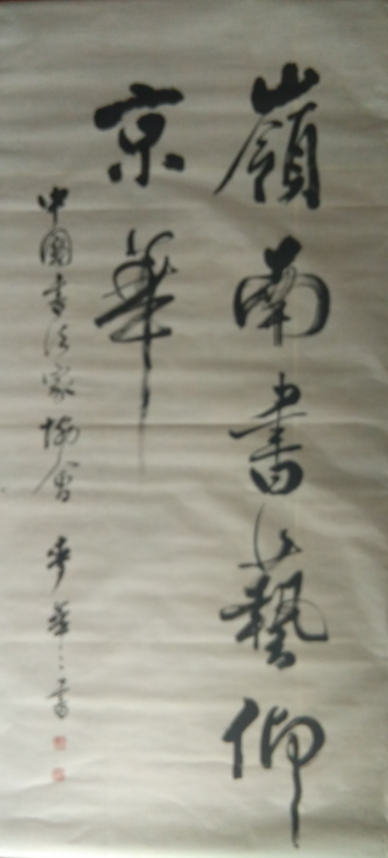 嶺南書藝仰
京華
中國書法家協會